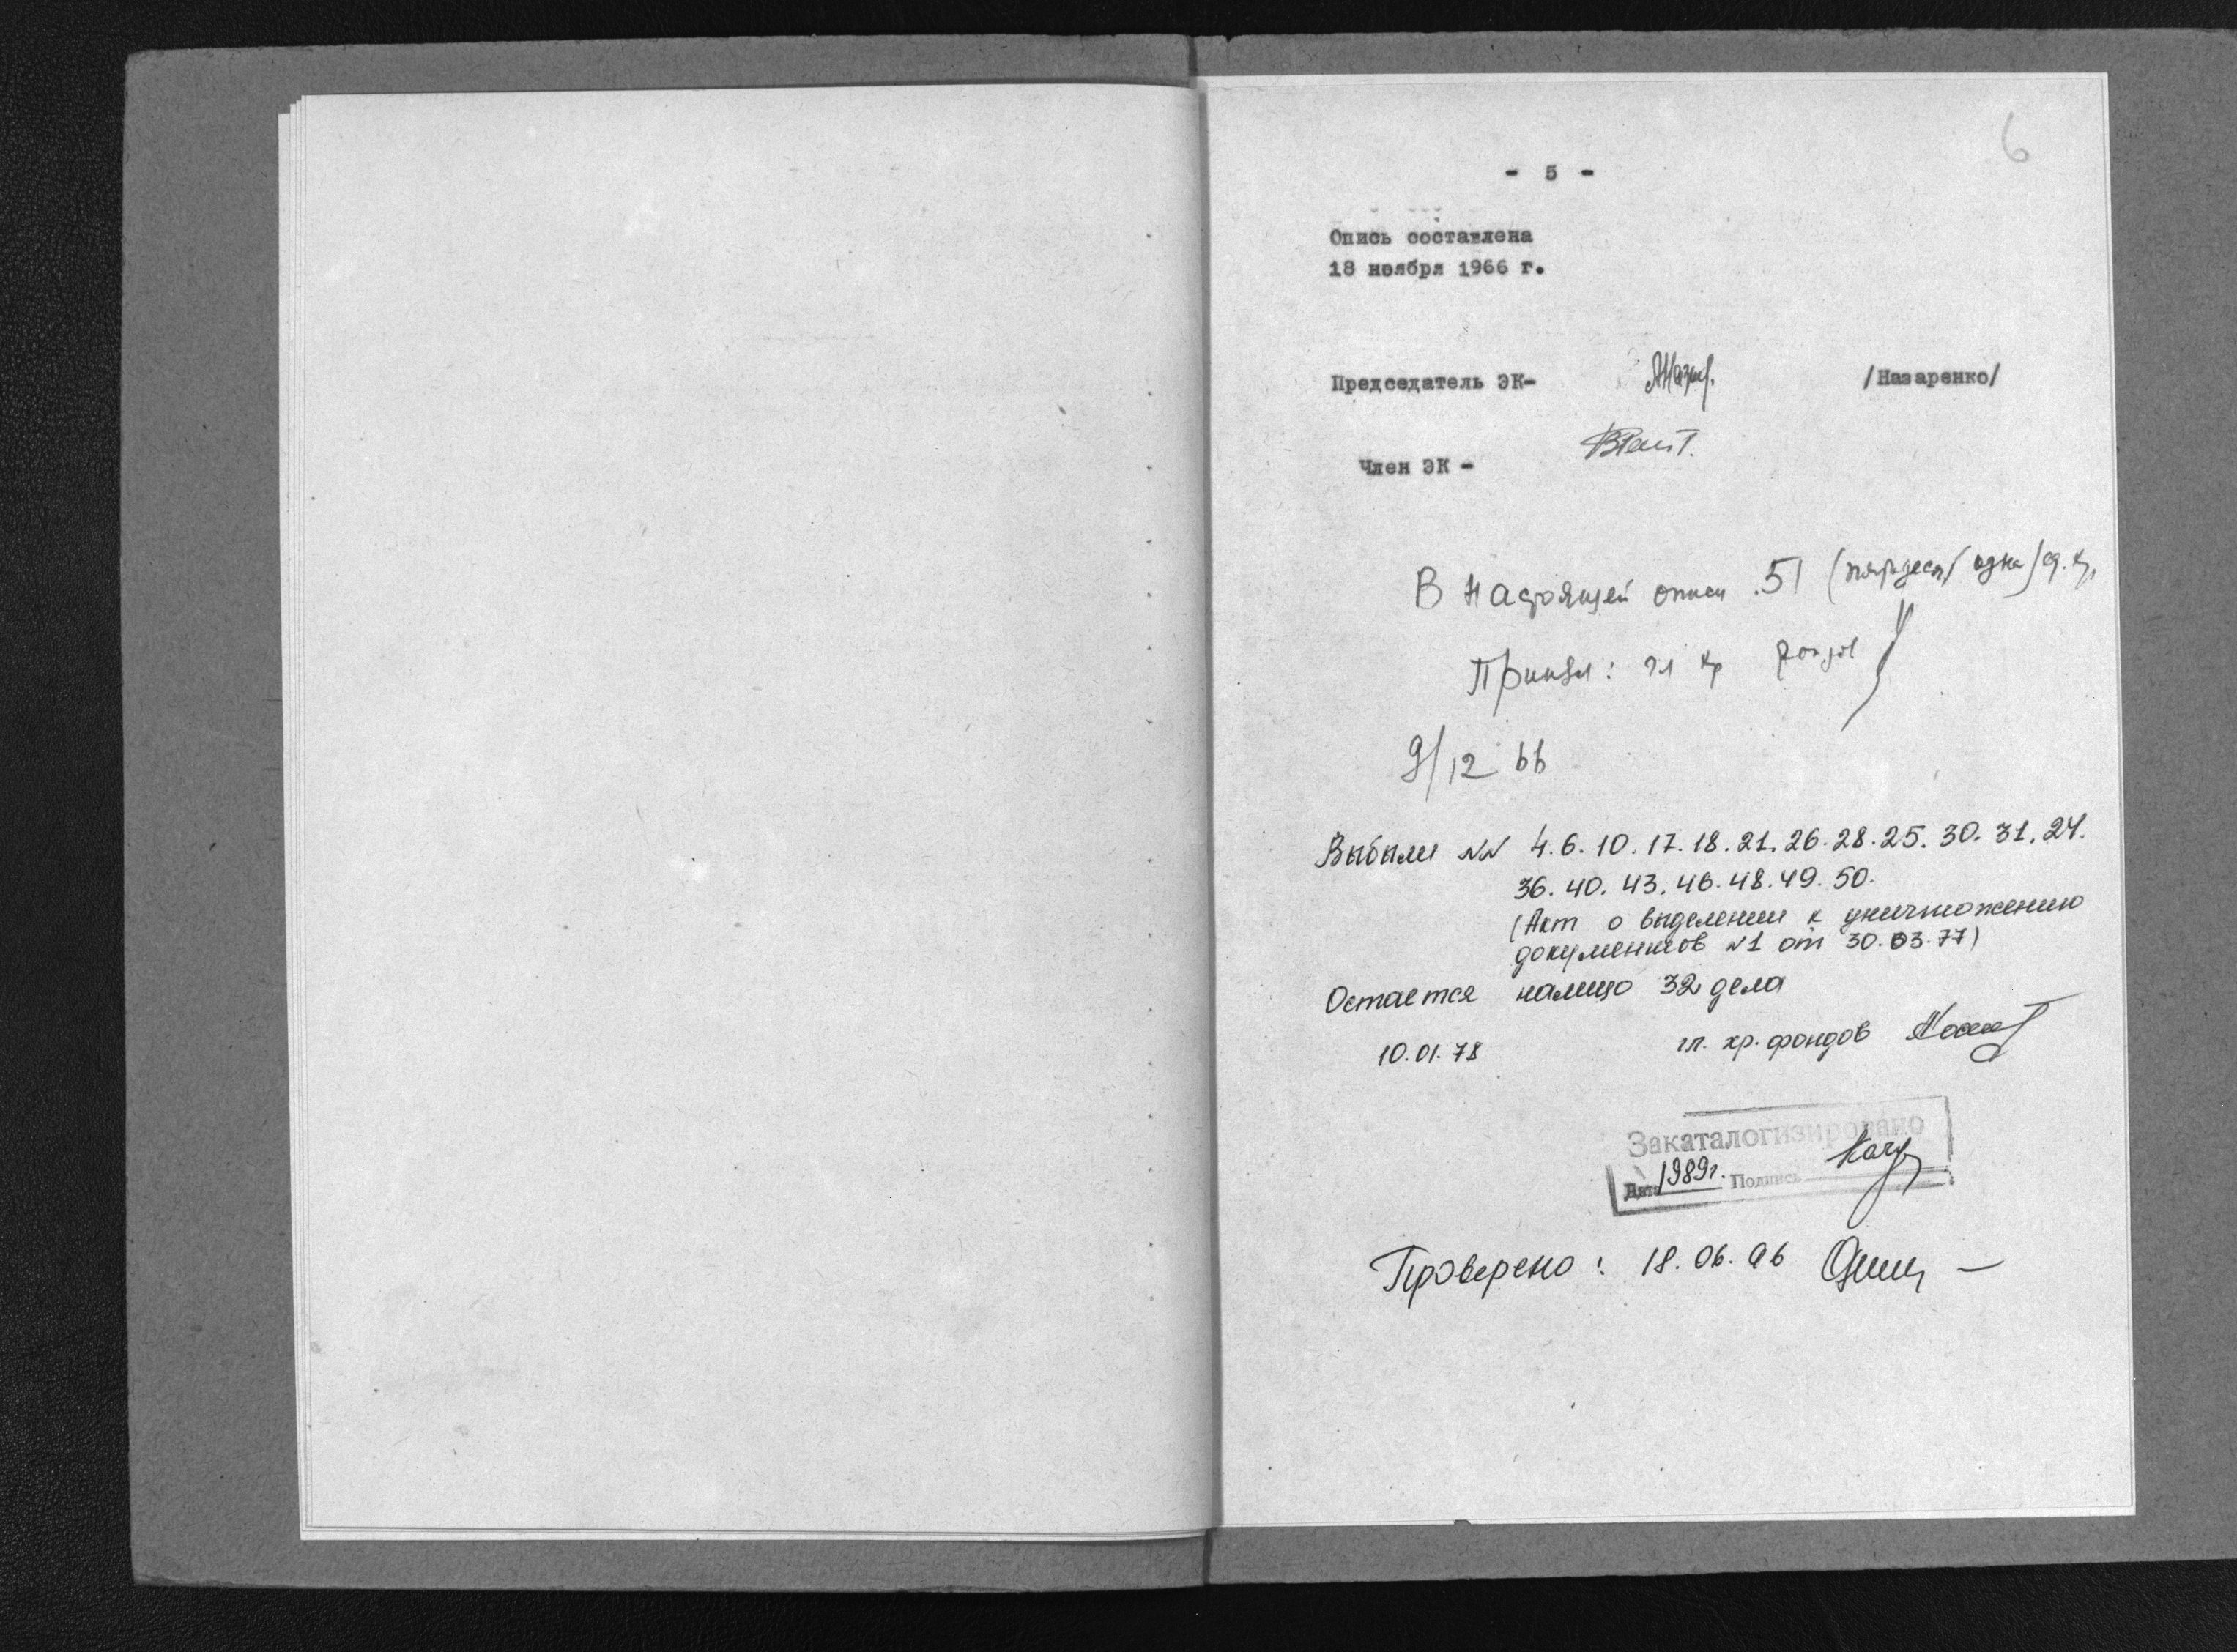 6
- 5 -
Опись составлена
18 ноября 1966 г.
Председатель ЭК- /Назаренко/
Член ЭК -
В настоящей описи 51 (пятьдесят одна) ед. хр.
Принял: гл хр фондов
9/12 66
Выбыли NN 4.6.10.17.18.21.26.28.25.30.31.24.
36.40.43.46.48.49.50.
(Акт о выделении к уничтожению
документов N1 от 30.03.77)
Остается налицо 32 дела
10.01.78 гл. хр. фондов
Закаталогизировано
Дата 1989г. Подпись
Проверено: 18.06.96